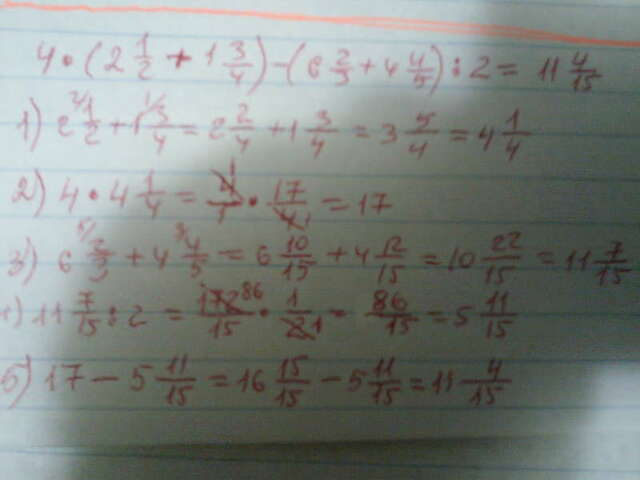 4 · (2 1/2 + 1 3/4) - (6 2/3 + 4 4/5) : 2 = 11 4/15
1) 2 1/2 + 1 3/4 = 2 2/4 + 1 3/4 = 3 5/4 = 4 1/4
2) 4 · 4 1/4 = 4/1 · 17/4 = 17
3) 6 2/3 + 4 4/5 = 6 10/15 + 4 12/15 = 10 22/15 = 11 7/15
4) 11 7/15 : 2 = 172/15 · 1/2 = 86/15 = 5 11/15
5) 17 - 5 11/15 = 16 15/15 - 5 11/15 = 11 4/15